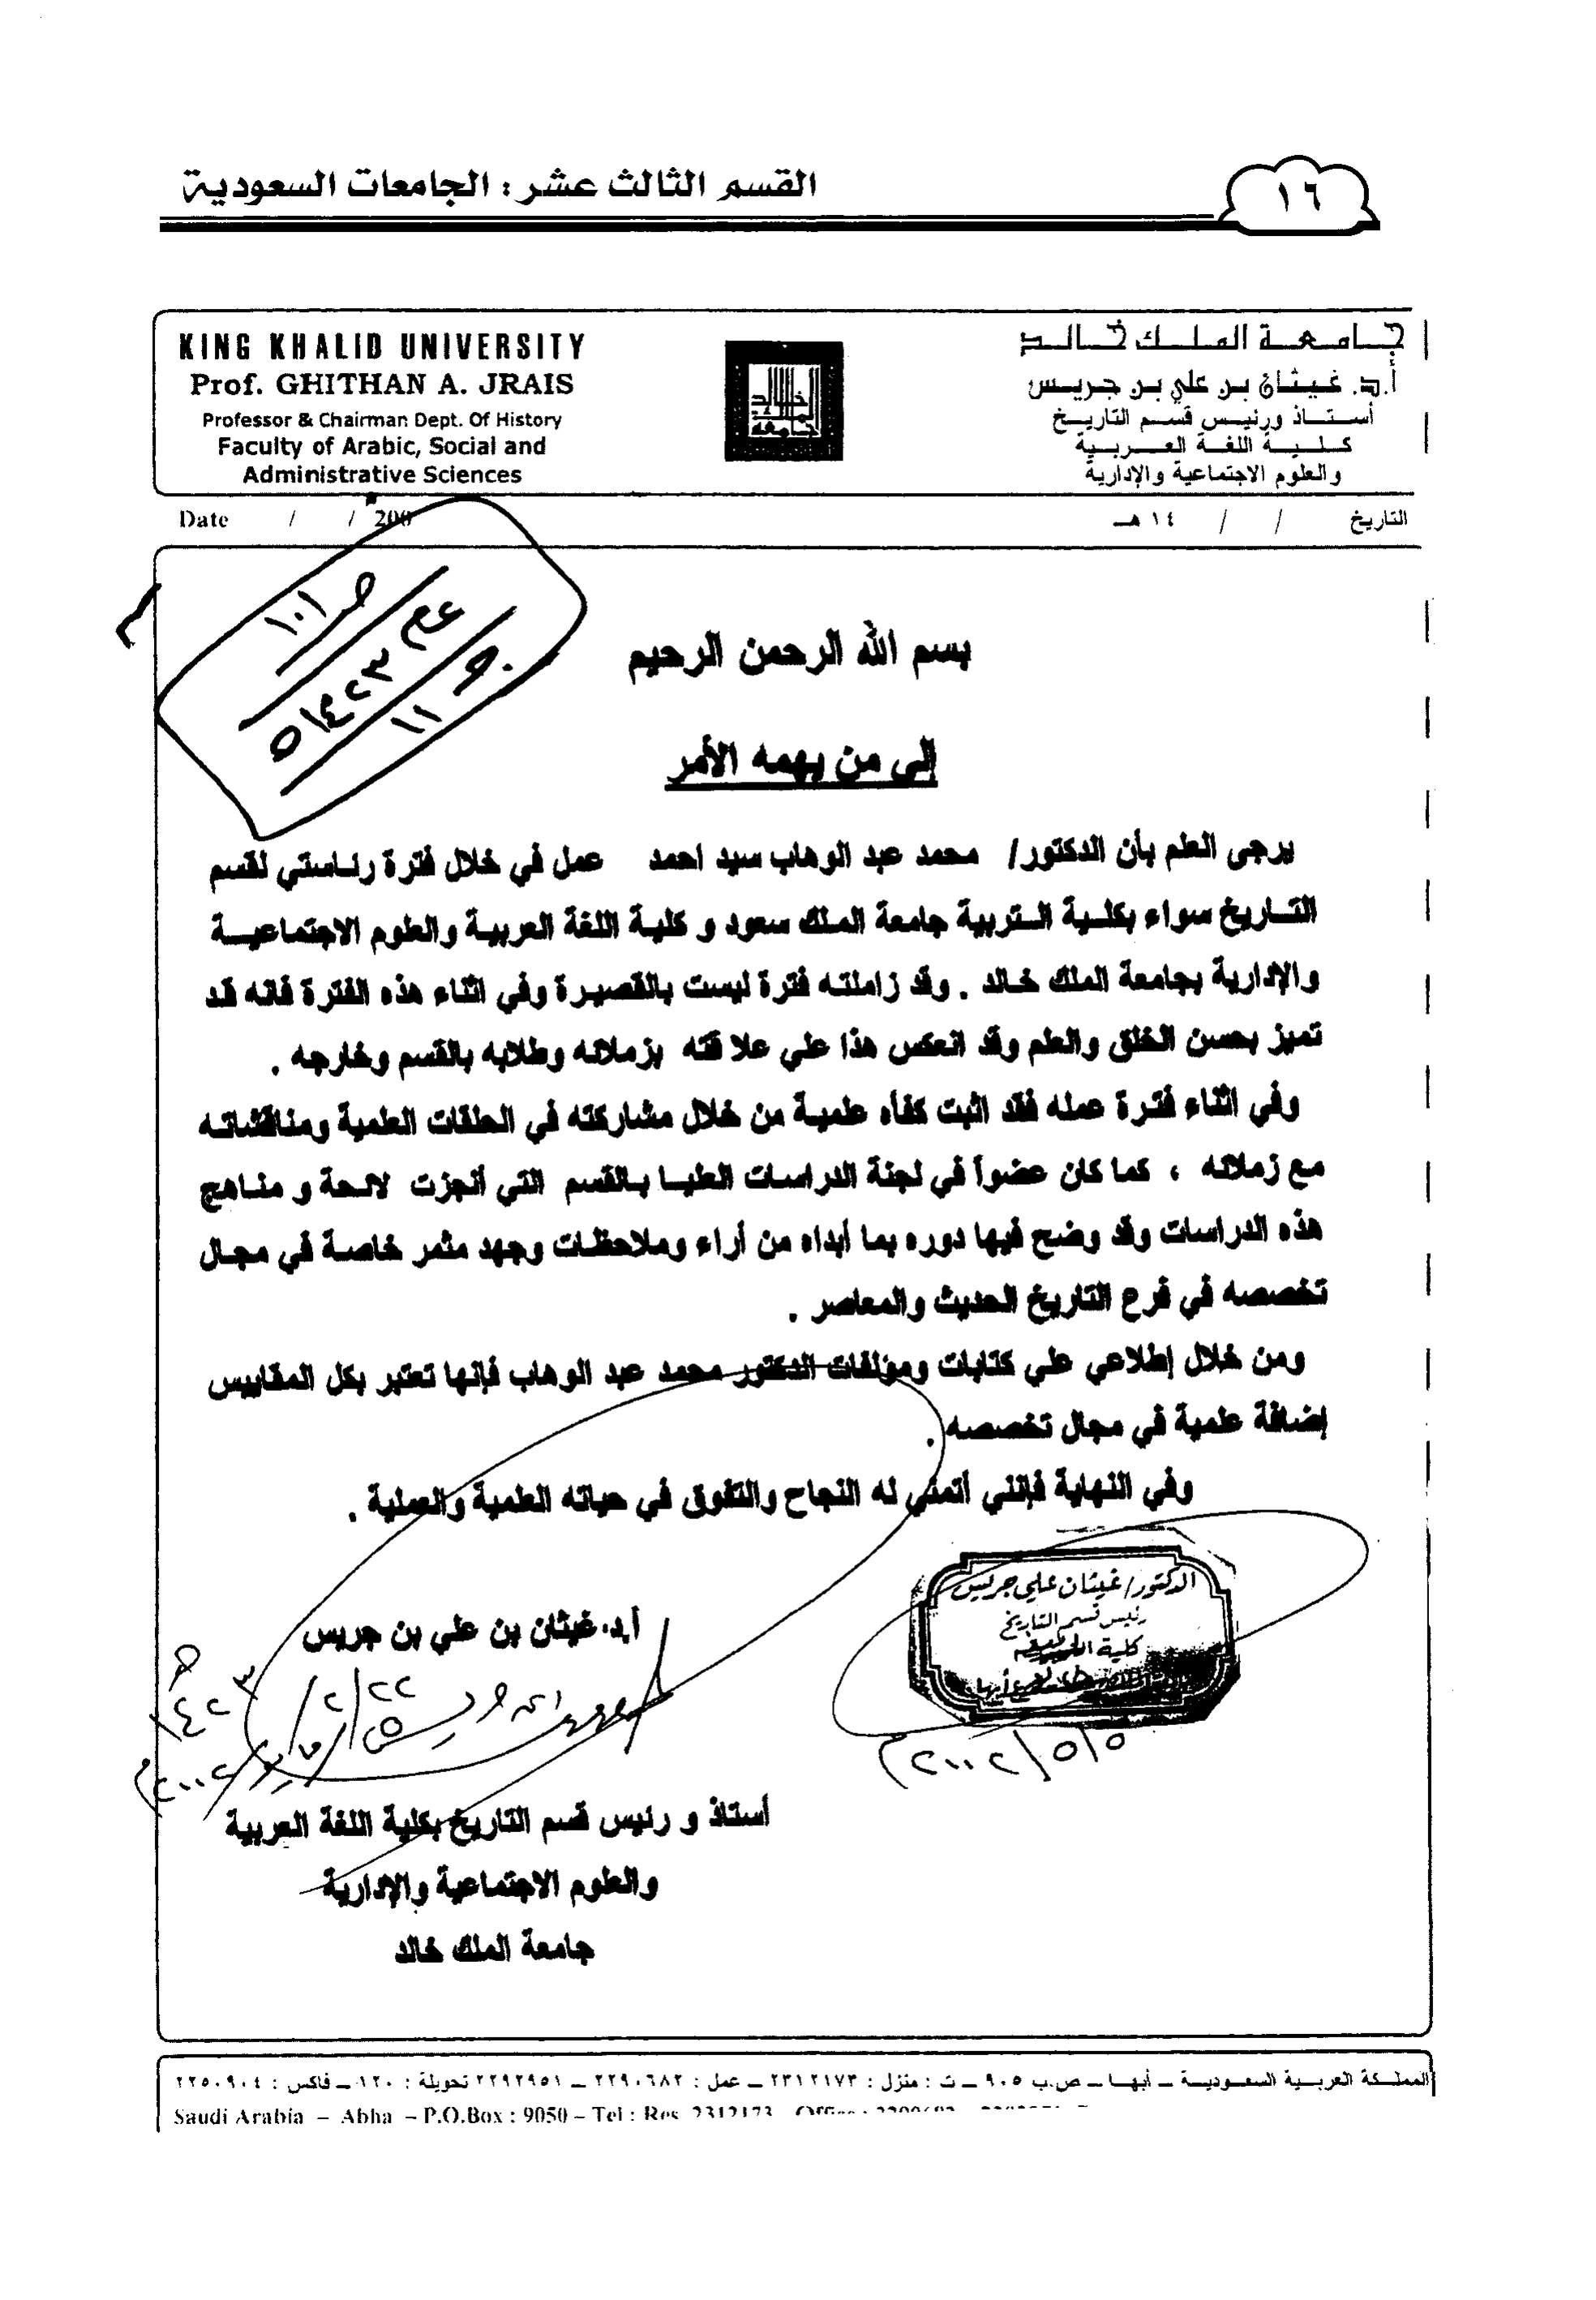 القسم الثالث عشر : الجامعات السعودية
١٦
KING KHALID UNIVERSITY
Prof. GHITHAN A. JRAIS
Professor & Chairman Dept. Of History
Faculty of Arabic, Social and
Administrative Sciences
جامعة الملك خالد
أ.د. غيثان بن علي بن جريس
أستاذ ورئيس قسم التاريخ
كلية اللغة العربية
والعلوم الاجتماعية والإدارية
Date / / 200
التاريخ / / ١٤ هـ
ص ١٠١
عام ١٤٢٣هـ
ج ١١
بسم الله الرحمن الرحيم
إلى من يهمه الأمر
يرجى العلم بأن الدكتور/ محمد عبد الوهاب سيد احمد عمل في خلال فترة رئاستي لقسم
التاريخ سواء بكلية التربية جامعة الملك سعود و كلية اللغة العربية والعلوم الاجتماعية
والإدارية بجامعة الملك خالد . وقد زاملته فترة ليست بالقصيرة وفي اثناء هذه الفترة فانه قد
تميز بحسن الخلق والعلم وقد انعكس هذا علي علاقته بزملائه وطلابه بالقسم وخارجه .
وفي اثناء فترة عمله فقد اثبت كفأه علمية من خلال مشاركته في الحلقات العلمية ومناقشاته
مع زملائه ، كما كان عضواً في لجنة الدراسات العليا بالقسم التي أنجزت لائحة و مناهج
هذه الدراسات وقد وضح فيها دوره بما أبداه من أراء وملاحظات وجهد مثمر خاصة في مجال
تخصصه في فرع التاريخ الحديث والمعاصر .
ومن خلال إطلاعي علي كتابات ومؤلفات الدكتور محمد عبد الوهاب فإنها تعتبر بكل المقاييس
إضافة علمية في مجال تخصصه .
وفي النهاية فإنني أتمني له النجاح والتفوق في حياته العلمية والعملية .
الدكتور/ غيثان علي جريس
رئيس قسم التاريخ
كلية
أبها
٢٠٠٢/٥/٥م
أ.د. غيثان بن علي بن جريس
٢٢/٢/١٤٢٣هـ
أستاذ و رئيس قسم التاريخ بكلية اللغة العربية
والعلوم الاجتماعية والإدارية
جامعة الملك خالد
المملكة العربية السعودية – أبها – ص.ب ٩٠٥ – ت : منزل : ٢٣١٢١٧٣ – عمل : ٢٢٩٠٦٨٢ – ٢٢٩٢٩٥١ تحويلة : ١٢٠ – فاكس : ٢٢٥٠٩٠٤
Saudi Arabia – Abha – P.O.Box : 9050 – Tel : Res. 2312173